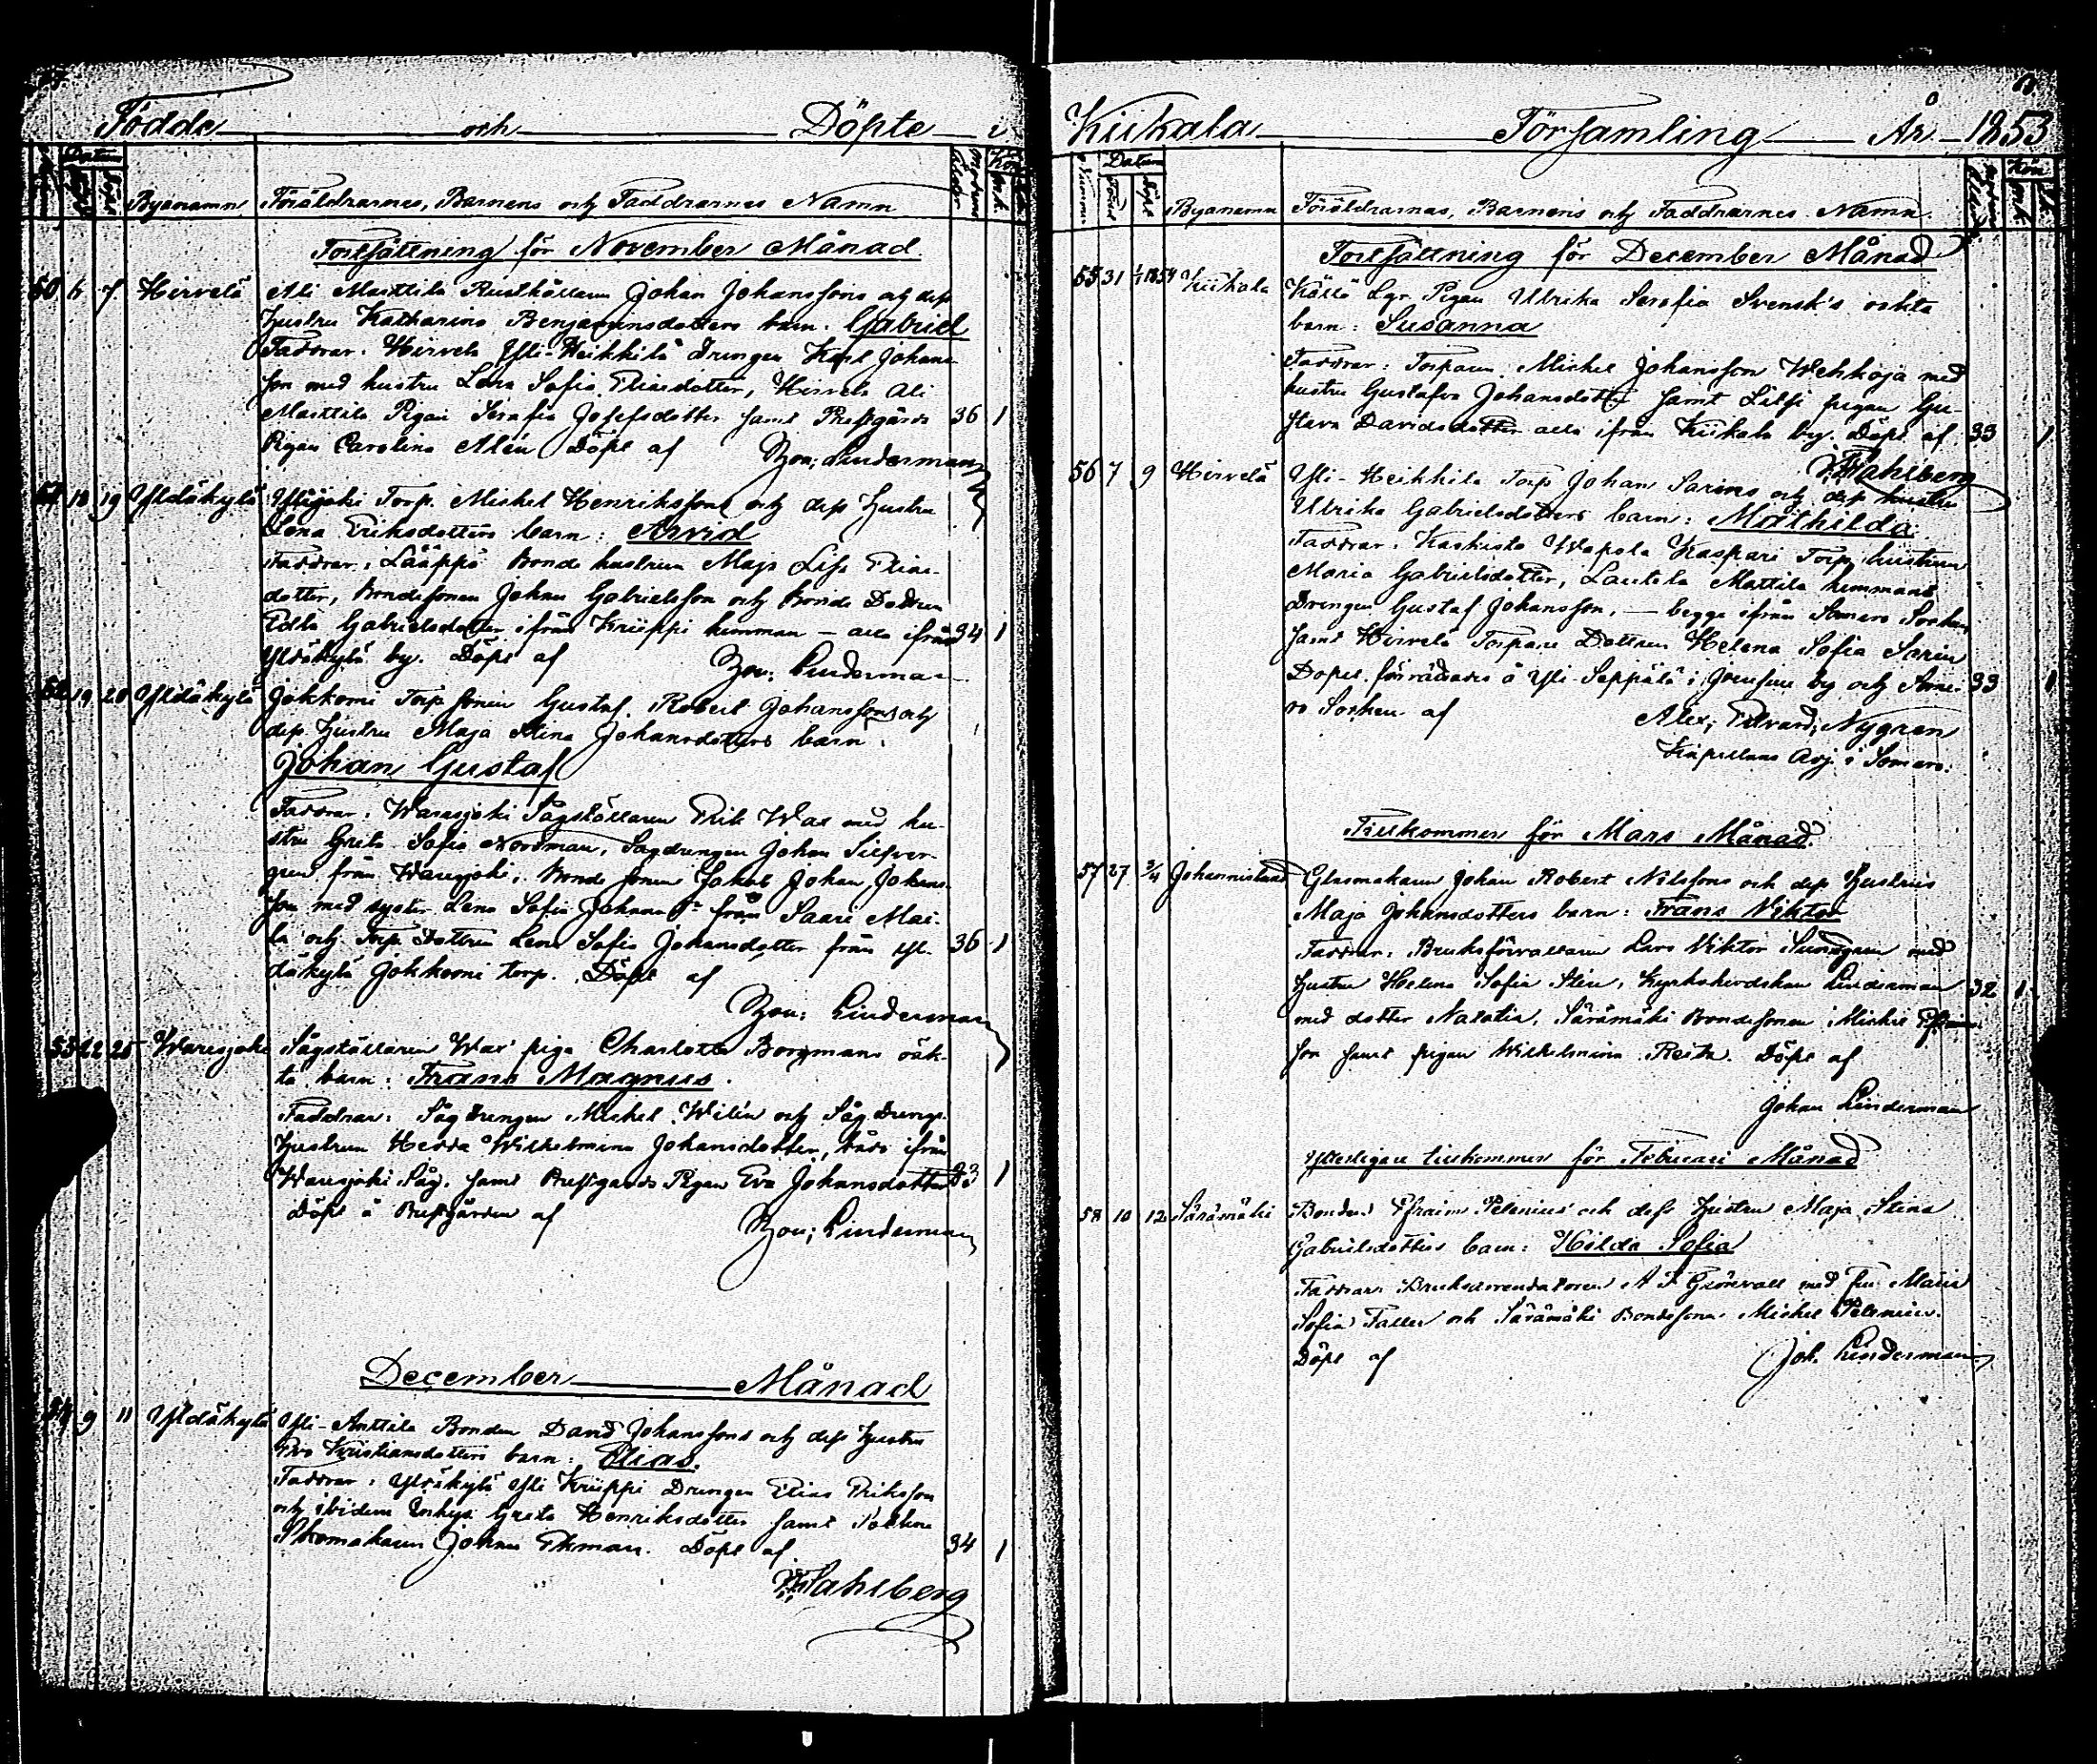 Födde och Döpte i
Datum
Kön
Byanamn Föräldrarnes, Barnens och Faddrarnes Namn
Fortsättning för November Månad.
50 6 7 Hirvelä Ali Marttila Rusthållaren Johan Johanssons och dess
hustru Katharina Benjaminsdotters barn: Gabriel
Faddrar: Hirvelä Yli-Heikkilä Drengen Karl Johans-
son med hustru Lena Sofia Eliaedotter, Hirvelä Ali
Marttila Pigan Serafia Josefsdotter samt Prestgårds 36 1
Pigan Carolina Alén Döpt af Linderman
51 18 19 Yldäkylä Torp. Michel Henrikssons och dess hustru
Lena Eriksdotters barn: Arvid
Faddrar: Lääppä Bonde hustrun Maja Lisa Elias-
dotter, Bondesonen Johan Gabrielsson och Bonde Dottren
Edla Gabrielsdotter ifrån Kriippi hemman – alla ifrån 34 1
Yldäkylä by. Döpt af Linderman
52 19 20 Yldäkylä Jokkomi Torp sonen Gustaf Robert Johanssons och
dess hustru Maja Stina Johansdotters barn:
Johan Gustaf
Faddrar: Waresjoki Sågställaren Erik Was med hu-
stru Greta Sofia Nordman, Sågdrengen Johan Silfver-
gren från Waresjoki, Bonde sonen Jakob Johan Johans-
son med syster Lena Sofia från Saari Mai-
la och Torp. Dottren Lena Sofia Johansdotter från Yl- 36 1
däkylä Jokkomi torp. Döpt af
Linderman
53 22 25 Waresjoki Sågställaren Was' piga Charlotta Borgmans oäk-
ta barn: Frans Magnus.
Faddrar: Sågdrengen Michel Wilén och Såg Drengs
hustrun Hedda Wilhelmina Johansdotter, båda ifrån
Waresjoki Såg, samt Prestgårds Pigan Eva Johansdotter 23 1
Döpt å Prestgården af
Linderman
December Månad
54 9 11 Yldäkylä Yli-Anttila Bonden David Johanssons och dess hustru
Eva Kristiansdotters barn: Elias.
Faddrar: Yldäkylä Yli Kriippi Drengen Elias Eriksson
och ibidem Greta Henriksdotter samt
Skomakaren Johan Ekman. Döpt af 34 1
Wahlberg
Kiikala Församling År 1853
Datum
Kön
Byanamn Föräldrarnes, Barnens och Faddrarnes Namn.
Fortsättning för December Månad
55 31 1/1 1854 Kiikala Källö Pigan Ulrika Serafia Svensk's oäkta
barn: Susanna
Faddrar: Torparen Michel Johansson Wehkoja med
hustru Gustafva Johansdotter samt pigan Gu-
stava Davidsdotter alla ifrån Kiikala by. Döpt af 33 1
Wahlberg
56 7 9 Hirvelä Yli-Heikkilä Torp Johan Sarins och dess hustru
Ulrika Gabrielsdotters barn: Mathilda
Faddrar: Kaskisto Wapola Kaspari Torp. hustrun
Maria Gabrielsdotter, Lautela Mattila hemmans
Drengen Gustaf Johansson, – begge ifrån Somero Socken
samt Hirvelä Torpare Dottren Helena Sofia Sarin
Döpel. förrättades å Yli-Seppälä i by och Some- 33 1
ro Socken af Alex; Edvard; Nygren
Kapellans Adj. i Somero.
Tillkommen för Mars Månad.
57 27 3/4 Johannislund Glasmakaren Johan Robert Nilssons och dess hustrus
Maja Johansdotters barn: Frans Viktor
Faddrar: Bruksförvaltaren Lars Viktor med
hustru Helena Sofia Alén, Kyrkoherdskan Linderman 32 1
med dotter Natalia, Särämäki Bondesonen Michel
son samt pigan Wilhelmina Döpt af
Johan Linderman
Ytterligare tillkommen för Februari Månad
58 10 12 Särämäki Bonden Efraim Pelenius och dess hustru Maja Stina
Gabrielsdotters barn: Hilda Sofia
Faddrar: Bruksarrendatoren A F Grönvall med fru Maria
Sofia och Särämäki Bondesonen Michel Pelenius.
Döpt af Joh. Linderman